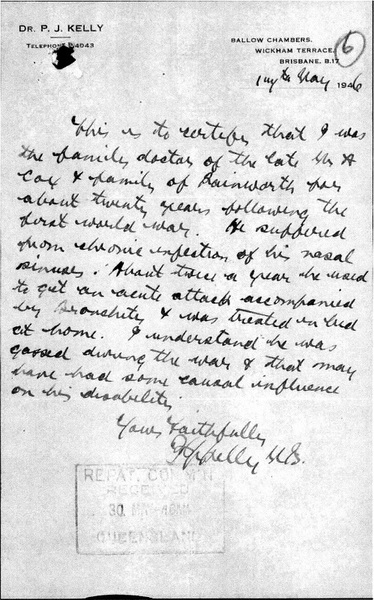 DR. P. J. KELLY
TELEPHONE B 4043
BALLOW CHAMBERS,
WICKHAM TERRACE,
BRISBANE, B.17
6
May 1946
This is to certify that I was
the family doctor of the late Mr A
Cox & family of Rainworth for
about twenty years following the
first world war. He suffered
from chronic infection of his nasal
sinuses. About twice a year he used
to get an acute attack accompanied
by Bronchitis & was treated in bed
at home. I understand he was
gassed during the war & that may
have had some causal influence
on his disability.
Yours Faithfully
PJKelly M.B.
REPAT. COMM'N
RECEIVED
30
QUEENSLAND